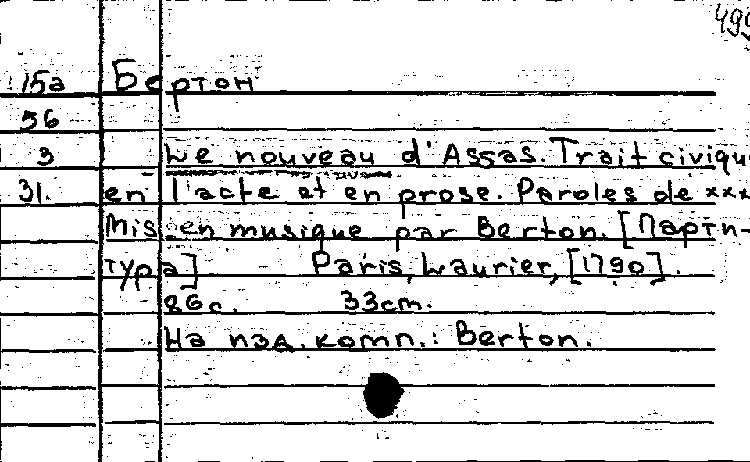 499
15а Бертон
56
3 Le nouveau d'Assas. Trait civiqu
31. en l'acte et en prose. Paroles de xxx
Mis en musique par Berton. [Парти-
тура] Paris, Laurier, [1790].
86с. 33cm.
На изд. комп.: Berton.